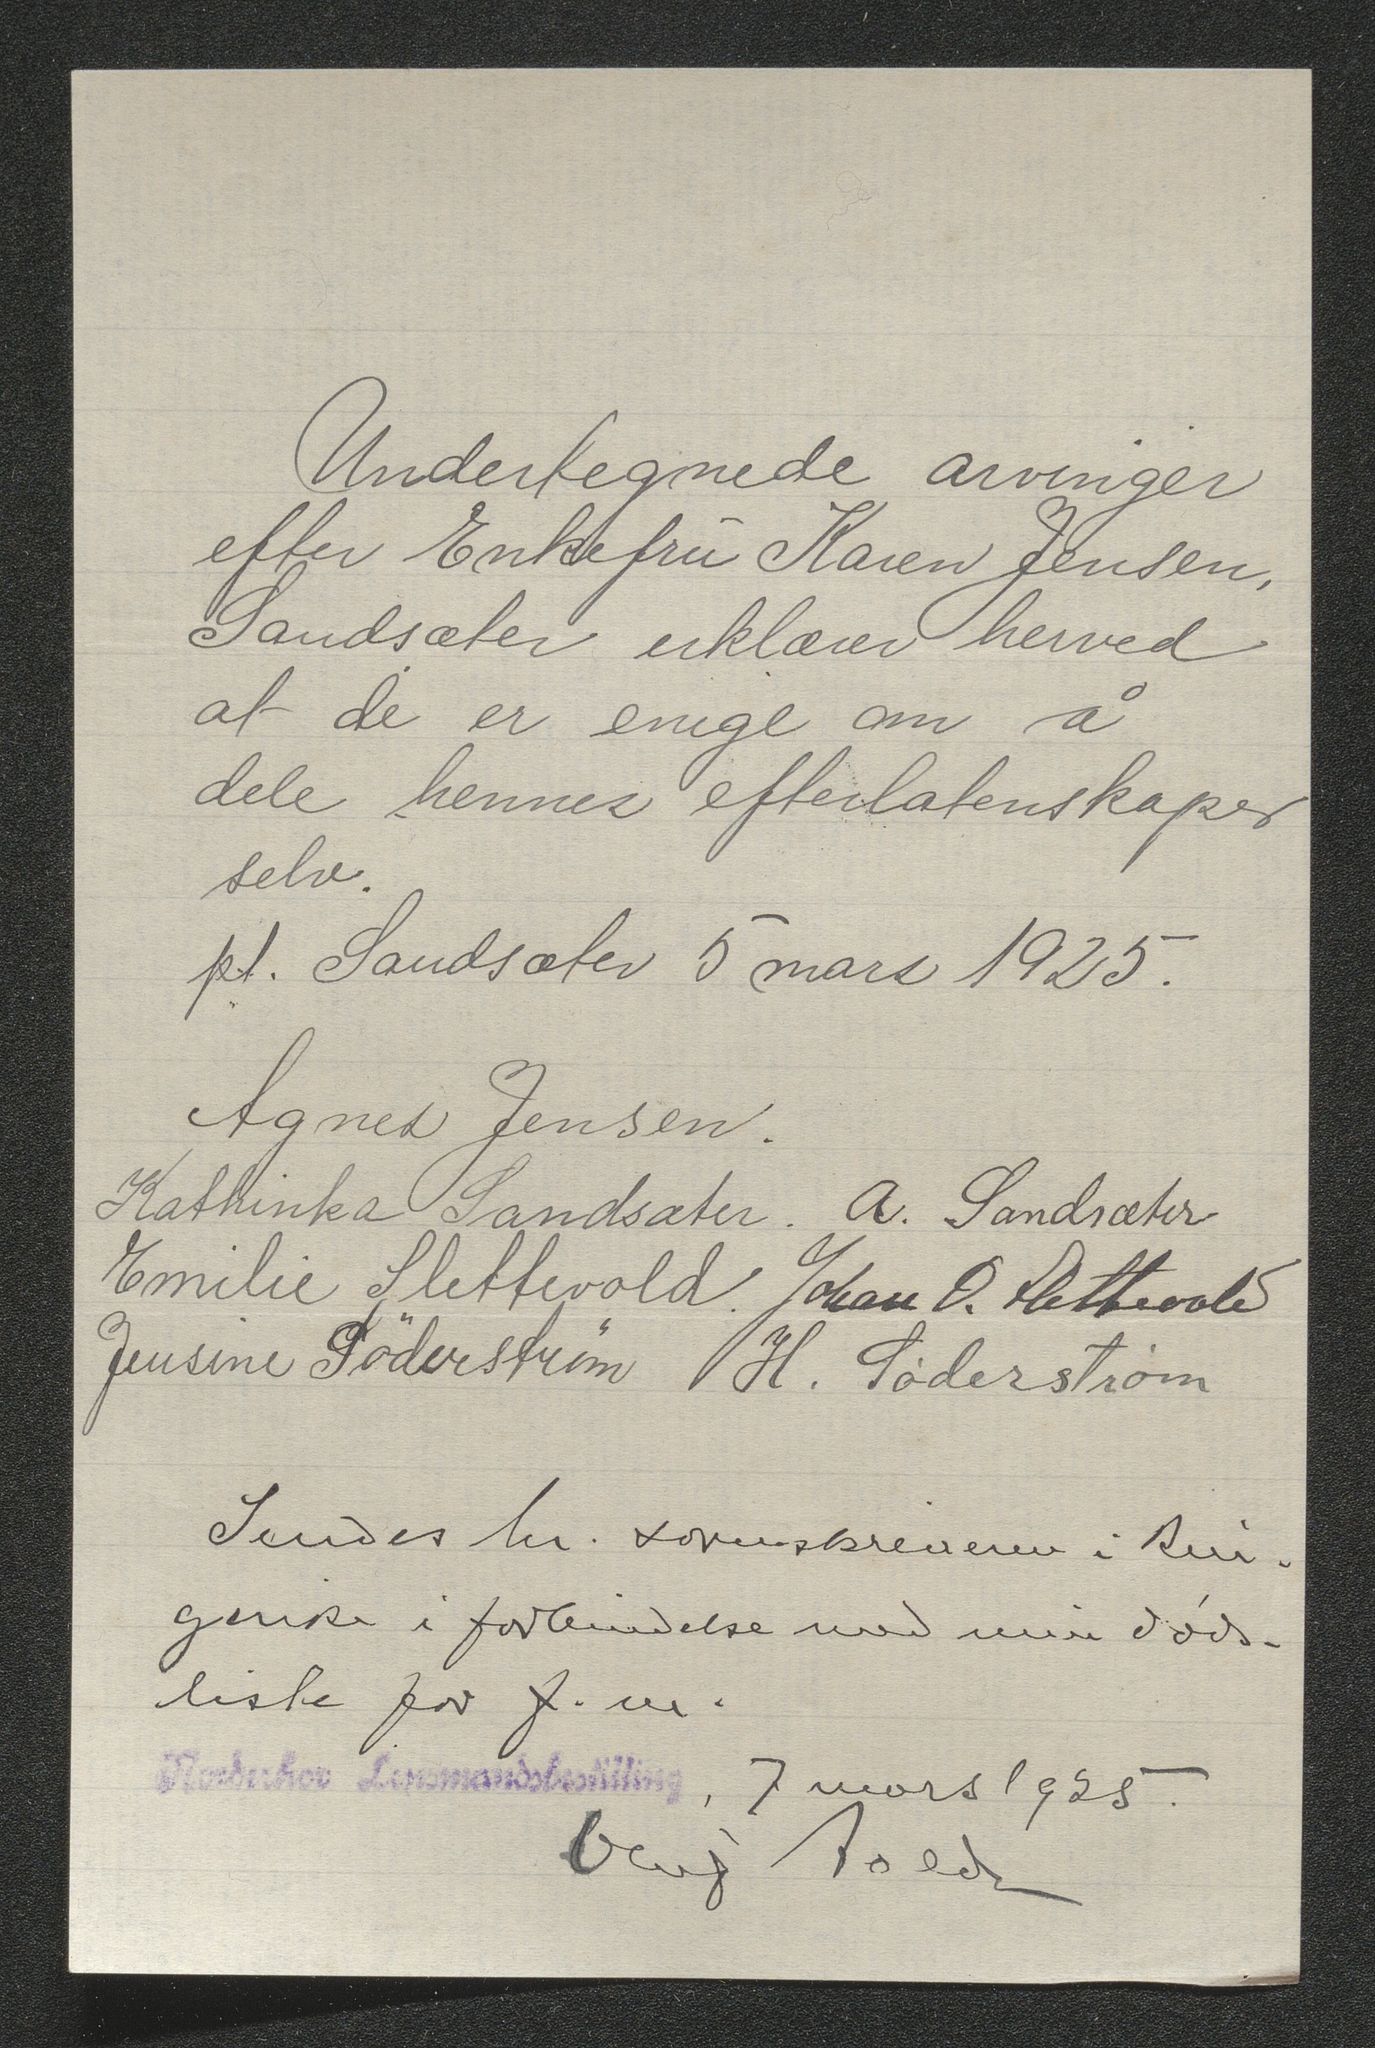 Undertegnede arvinger
efter Enkefru Karen Jensen,
Sandsæter erklærer herved
at de er enige om å
dele hennes efterlatenskaper
selv.
pt. Sandsæter 5 mars 1925.
Agnes Jensen.
Kathinka Sandsæter. A. Sandsæter
Emilie Slettevold. Johan O. Slettevold
Jensine Söderström H. Søderstrøm
Sendes hr. sorenskriveren i Rin-
gerike i forbindelse med min døds-
liste for f. m.
Norderhov Lensmandsbestilling, 7 mars 1925.